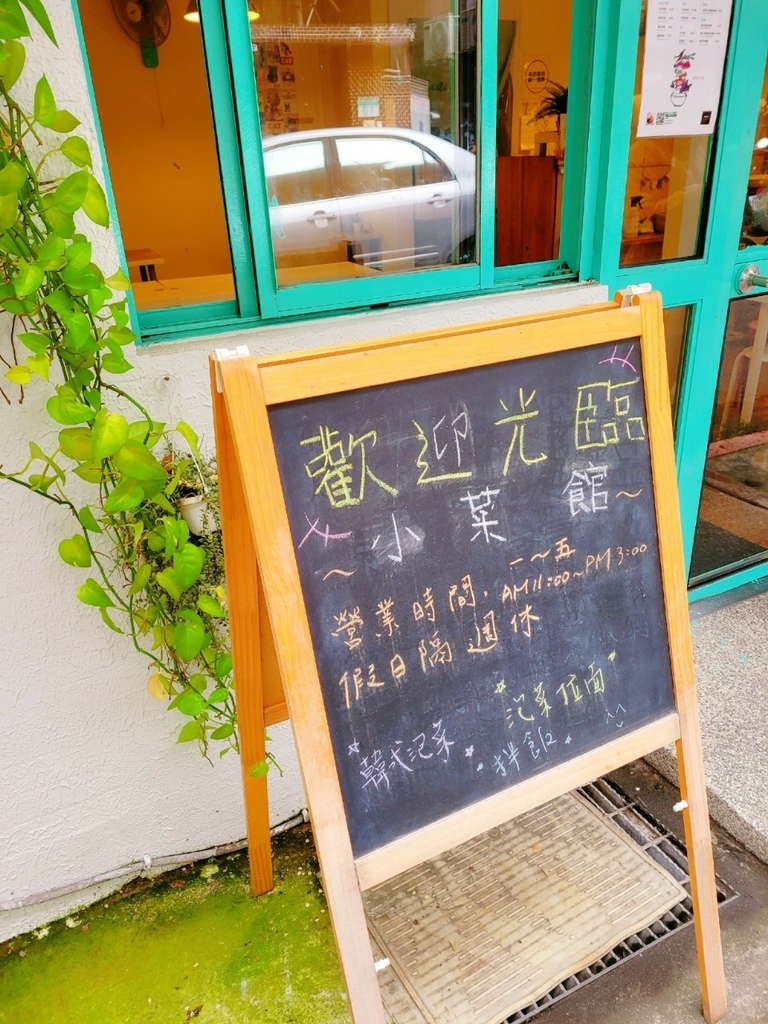 歡迎光臨
~小菜館~
營業時間. 一~五
AM11:00~PM3:00
假日隔週休
韓式泡菜
泡菜拉面
拌飯